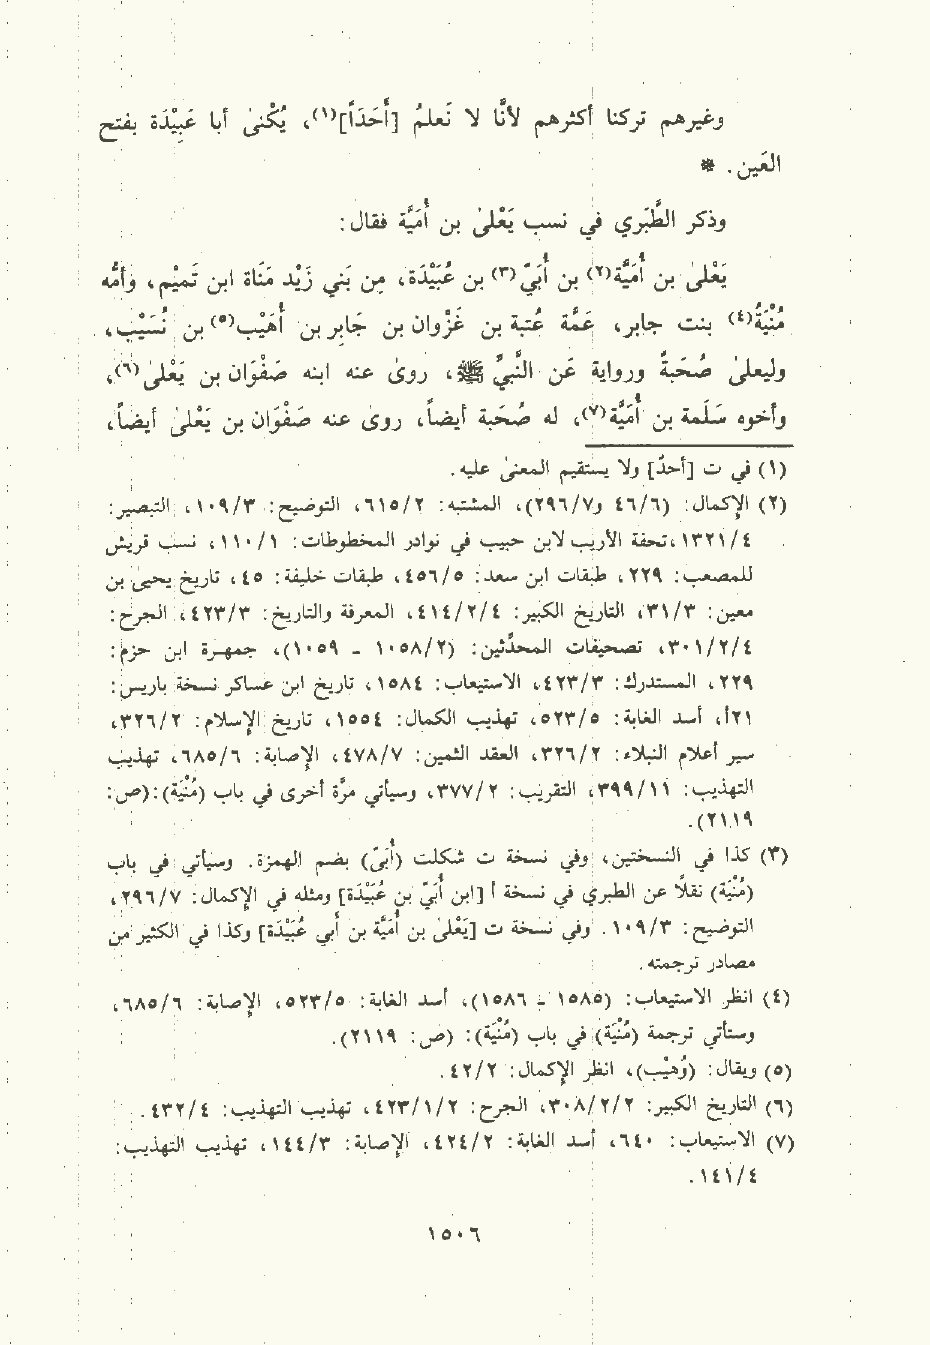 وغيرهم تركنا أكثرهم لأنَّا لا نَعلمُ [أَحَدَاً]<sup>(١)</sup>، يُكْنىٰ أبا عَبِيْدَة بفتح
العَين. *
وذكر الطَّبَري في نسب يَعْلىٰ بن أُمَيَّة فقال:
يَعْلىٰ بن أُمَيَّة(٢) بن أُبَيّ(٣) بن عُبَيْدَة، مِن بَني زَيْد مَنَاة ابن تَميْم، وأمُّه
مُنْيَةُ(٤) بنت جابر، عَمَّة عُتبة بن غَزْوان بن جَابِر بن أُهَيْب(٥) بن نُسَيْب،
وليعلىٰ صُحَبةٌ ورواية عَن النَّبيِّ ﷺ، روىٰ عنه ابنه صَفْوَان بن يَعْلىٰ(٦)،
وأخوه سَلَمة بن أُمَيَّة(٧)، له صُحَبة أيضاً، روىٰ عنه صَفْوَان بن يَعْلىٰ أيضاً،
(١) في ت [أحدٌ] ولا يستقيم المعنىٰ عليه.
(٢) الإكمال: (٤٦/٦ و٢٩٦/٧)، المشتبه: ٦١٥/٢، التوضيح: ١٠٩/٣، التبصير:
١٣٢١/٤، تحفة الأريب لابن حبيب في نوادر المخطوطات: ١١٠/١، نسب قريش
للمصعب: ٢٢٩، طبقات ابن سعد: ٤٥٦/٥، طبقات خليفة: ٤٥، تاريخ يحيىٰ بن
معين: ٣١/٣، التاريخ الكبير: ٤١٤/٢/٤، المعرفة والتاريخ: ٤٢٣/٣، الجرح:
٣٠١/٢/٤، تصحيفات المحدِّثين: (١٠٥٨/٢ ـ ١٠٥٩)، جمهرة ابن حزم:
٢٢٩، المستدرك: ٤٢٣/٣، الاستيعاب: ١٥٨٤، تاريخ ابن عساكر نسخة باريس:
٢١أ، أسد الغابة: ٥٢٣/٥، تهذيب الكمال: ١٥٥٤، تاريخ الإسلام: ٣٢٦/٢،
سير أعلام النبلاء: ٣٢٦/٢، العقد الثمين: ٤٧٨/٧، الإصابة: ٦٨٥/٦، تهذيب
التهذيب: ٣٩٩/١١، التقريب: ٣٧٧/٢، وسيأتي مرَّة أخرى في باب (مُنْيَة):(ص:
٢١١٩).
(٣) كذا في النسختين، وفي نسخة ت شكلت (أُبَيّ) بضم الهمزة. وسيأتي في باب
(مُنْيَة) نقلاً عن الطبري في نسخة أ [ابن أُبَيّ بن عُبَيْدَة] ومثله في الإكمال: ٢٩٦/٧،
التوضيح: ١٠٩/٣. وفي نسخة ت [يَعْلىٰ بن أُمَيَّة بن أَبي عُبَيْدَة] وكذا في الكثير من
مصادر ترجمته.
(٤) انظر الاستيعاب: (١٥٨٥ ـ ١٥٨٦)، أسد الغابة: ٥٢٣/٥، الإصابة: ٦٨٥/٦،
وستأتي ترجمة (مُنْيَة) في باب (مُنْيَة): (ص: ٢١١٩).
(٥) ويقال: (وُهَيْب)، انظر الإكمال: ٤٢/٢.
(٦) التاريخ الكبير: ٣٠٨/٢/٢، الجرح: ٤٢٣/١/٢، تهذيب التهذيب: ٤٣٢/٤.
(٧) الاستيعاب: ٦٤٠، أسد الغابة: ٤٢٤/٢، الإصابة: ١٤٤/٣، تهذيب التهذيب:
١٤١/٤.
١٥٠٦